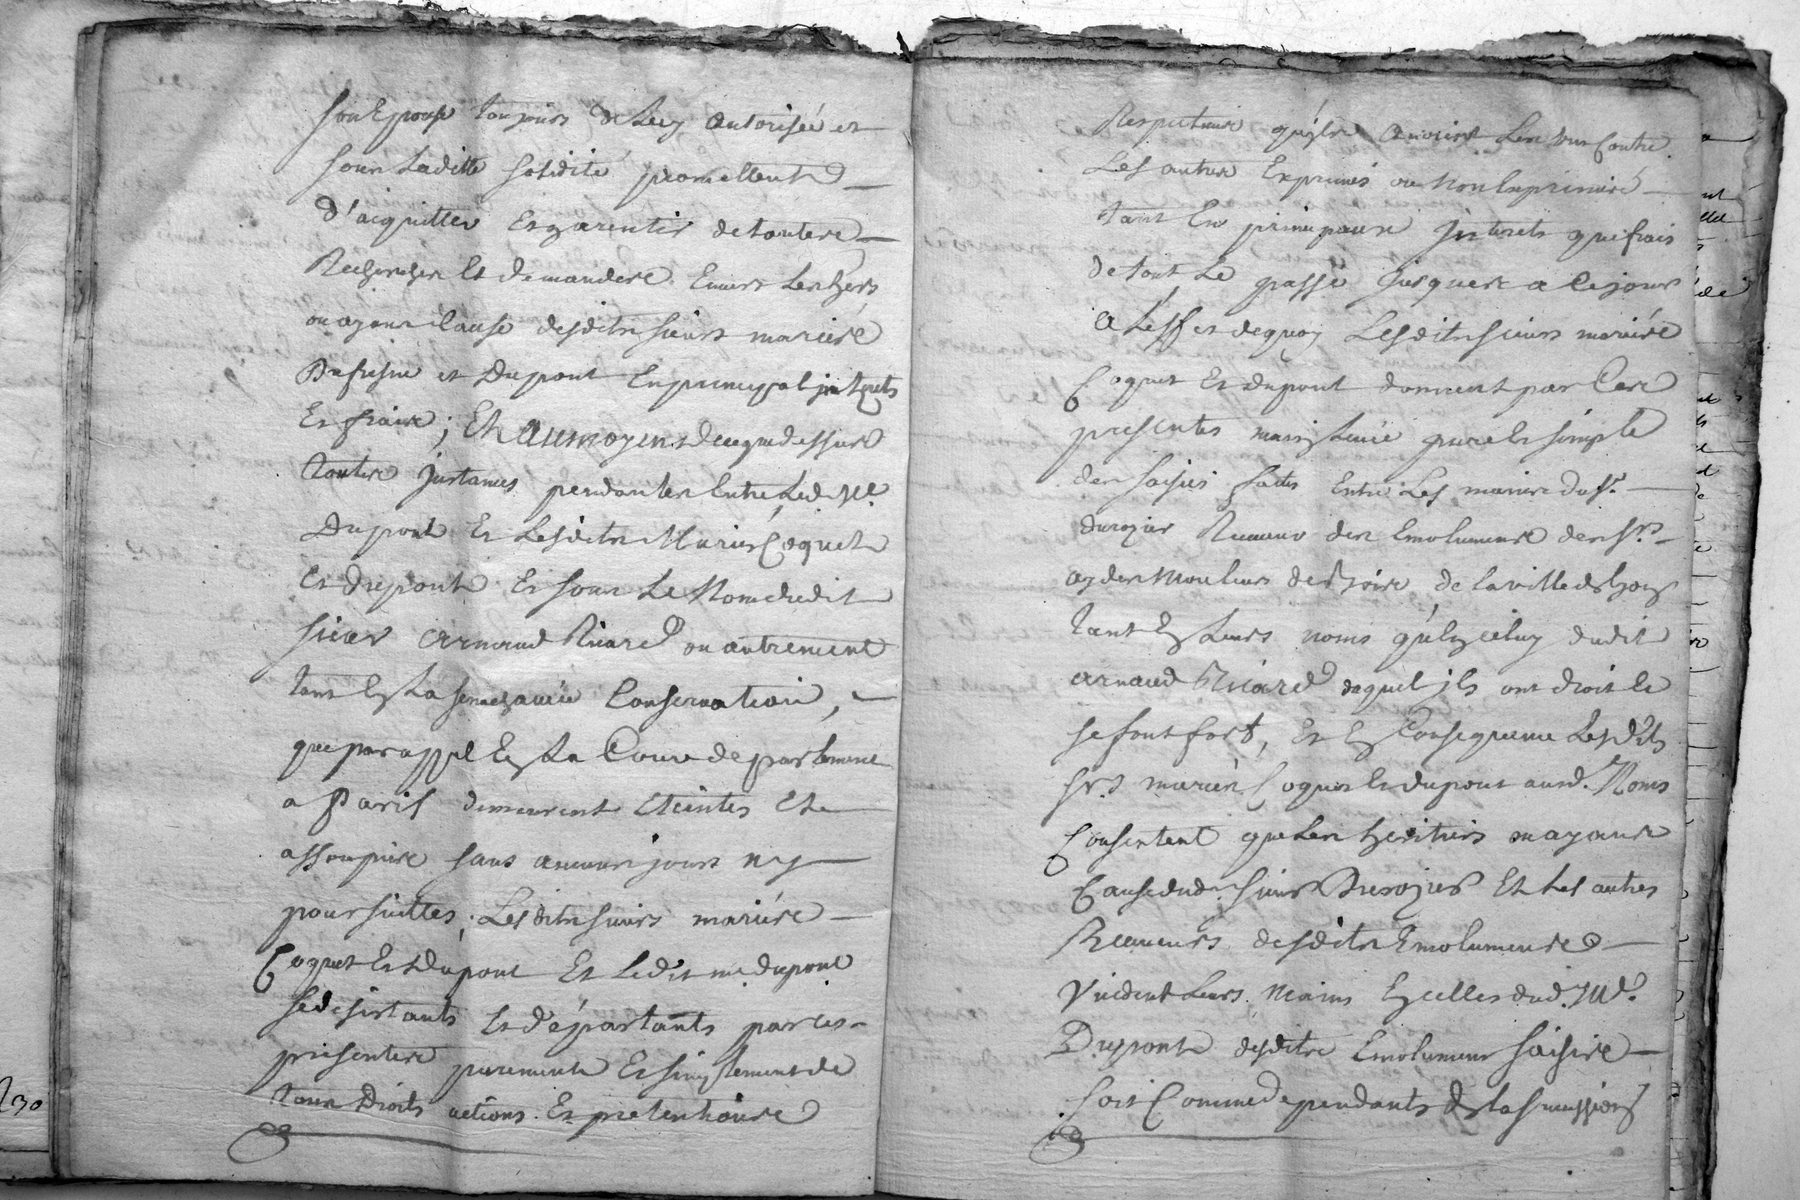 son Epouse toujours de Luy autorisée et
sous Laditte solidité promettent
d'acquitter Et garentir de toutes
Recherches Et demandes Envers Les hers
ou ayans Cause desdits sieurs mariés
Dufresne et Dupont En principal intérêts
Et frais; Et Aumoyens de ceque dessus
Toutes Jnstances pendantes Entre Led. Me.
Dupont Et Lesdits Mariés Coquet
Et Dupont Et sous Le Nom dudit
sieur Arnaud Ricard ou autrement
tant En La Conservation,
que par appel En La Cour de parlement
a Paris demeurent Eteintes Et
assoupies sans aucunes jours ny
poursuittes; Lesdits sieurs mariés
Coquet Et Dupont Et Ledit me. dupont
se désistants Et départants par ces
présentes purement Et simplement de
Tous Droits actions Et prétentions
Respectives qu'ils avoient Les uns Contre
Les autres Exprimés ou Non Exprimés
tant En principaux Jnterets que frais
de tout Le passé Jusques a Ce jour
A L'effet dequoy Lesdits sieurs mariés
Coquet Et dupont donnent par Ces
présentes mainlevée pure Et simple
des saisies faites Entre Les mains du Sr.
durozier Receveur des Emolumens des Srs.
aydes Mouleurs de Bois de la ville de Lyon
tant En Leurs noms qu'En celuy dudit
arnaud Ricard duquel ils ont droit Et
se font fort, Et En Consequence Lesdits
Srs. mariés Coquet Et dupont aud. Noms
Consentent que Les heritiers ou ayans
Cause dud. sieur Durozier Et Les autres
Receveurs desdits Emolumens
Vuident Leurs mains En celles dud. Me.
Dupont desdits Emolumens saisis
soit Comme dependants de la succession
30